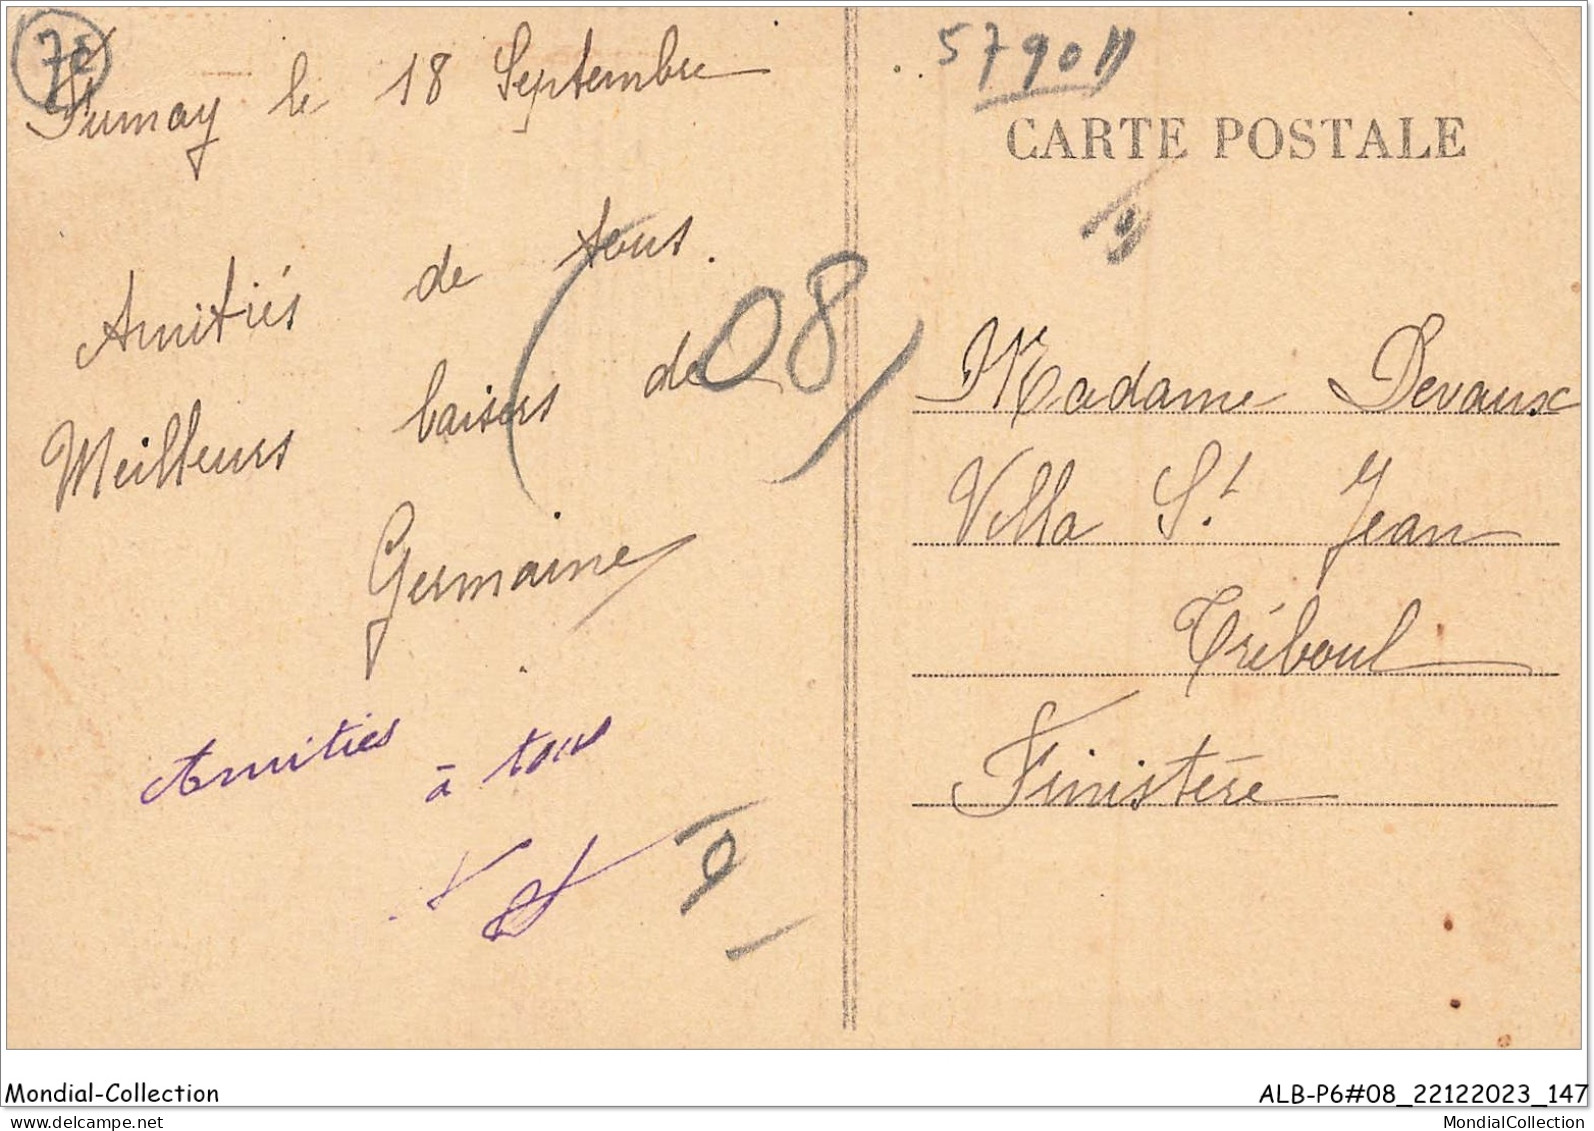 Fumay le 18 Septembre
Amitiés de tous.
Meilleurs baisers de
Germaine
Amitiés
à tous
(08)
CARTE POSTALE
Madame Devaux
Villa St Jean
Tréboul
Finistère
Mondial-Collection
ALB-P6#08_22122023_147
MondialCollection